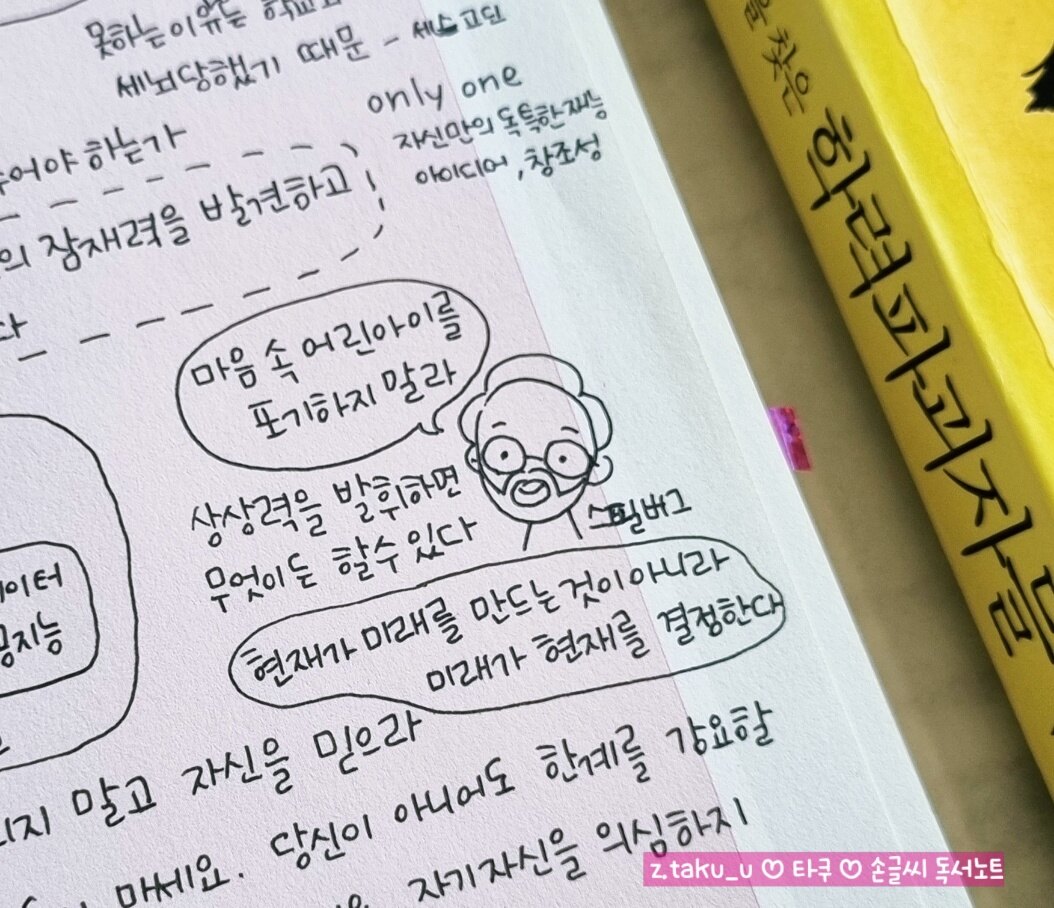 못하는 이유는
세뇌당했기 때문 - 세스 고딘
only one
자신만의 독특한 재능
아이디어, 창조성
어야 하는가
의 잠재력을 발견하고
다
마음 속 어린아이를
포기하지 말라
상상력을 발휘하면
무엇이든 할 수 있다
스필버그
현재가 미래를 만드는 것이 아니라
미래가 현재를 결정한다
이터
공지능
지 말고 자신을 믿으라
마세요. 당신이 아니어도 한계를 강요할
자기자신을 의심하지
을 찾은 학력파괴자들
z.taku_u ♡ 타쿠 ♡ 손글씨 독서노트